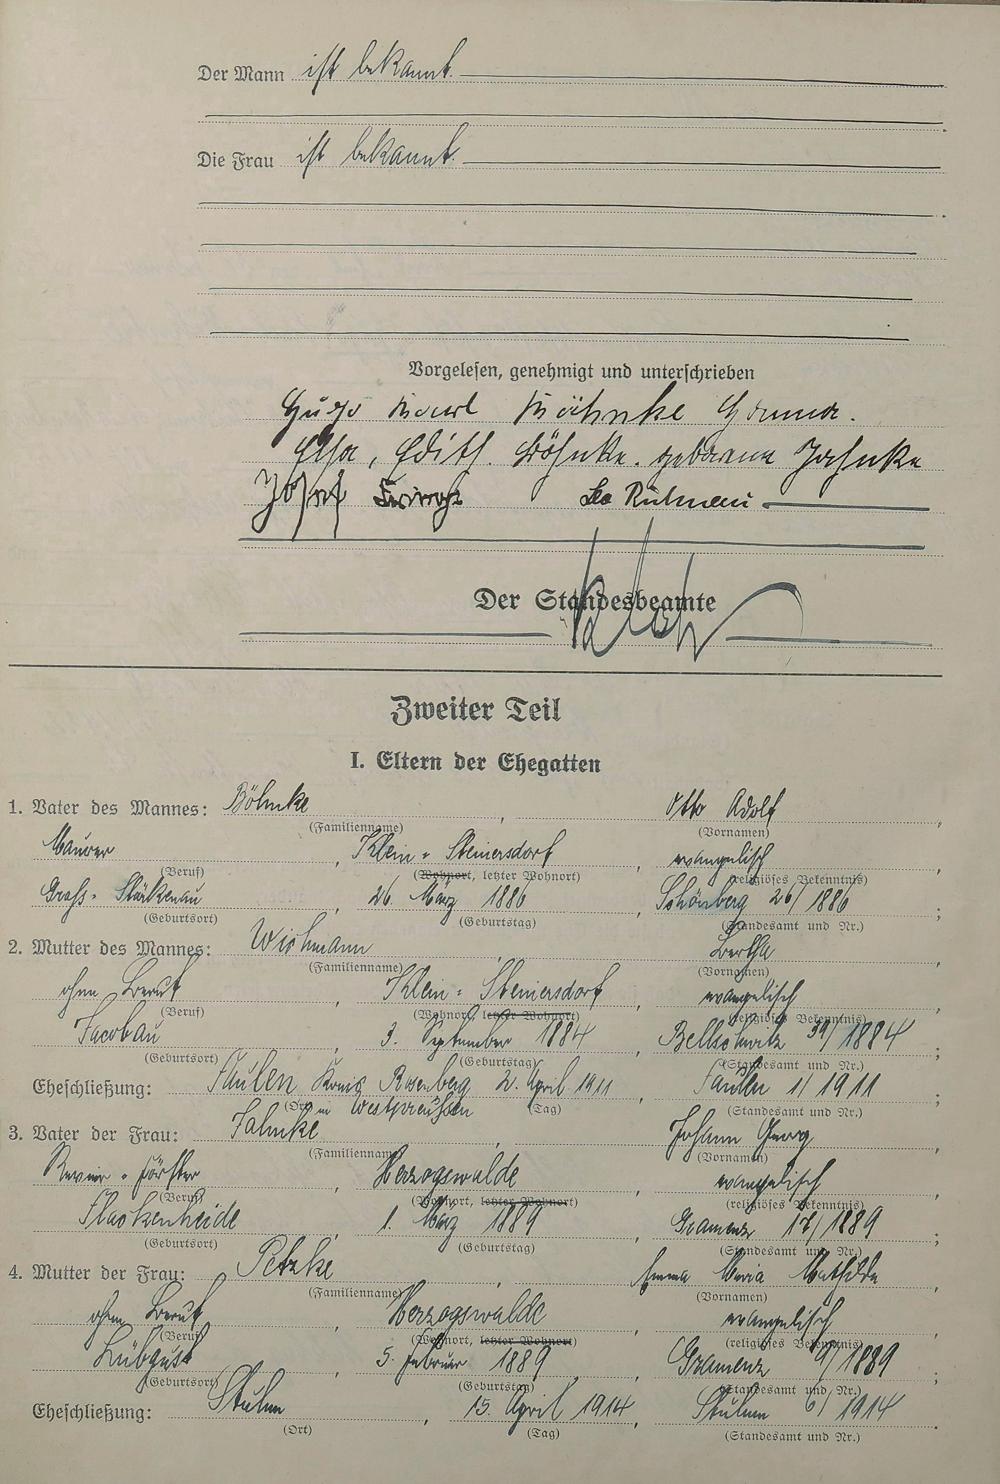 Der Mann ist bekannt.
Die Frau ist bekannt.
Vorgelesen, genehmigt und unterschrieben
Hugo Karl
Elsa, Edith. Böhnke. geborene Jahnke
Josef
Der Standesbeamte
Zweiter Teil
I. Eltern der Ehegatten
1. Vater des Mannes: Böhnke, Otto Adolf,
(Familienname) (Vornamen)
Maurer, Klein-Steinersdorf, evangelisch
(Beruf) (Wohnort, letzter Wohnort) (religiöses Bekenntnis)
Groß-Stärkenau, 26. März 1886, Schönberg 26/1886;
(Geburtsort) (Geburtstag) (Standesamt und Nr.)
2. Mutter des Mannes: Wichmann, Bertha,
(Familienname) (Vornamen)
ohne Beruf, Klein-Steinersdorf, evangelisch,
(Beruf) (Wohnort, letzter Wohnort) (religiöses Bekenntnis)
Jacobau, 3. September 1884, Bellschwitz 39/1884;
(Geburtsort) (Geburtstag) (Standesamt und Nr.)
Eheschließung: Faulen Kreis Rosenberg 2. April 1911 Faulen 1/1911;
(Ort) in Westpreußen (Tag) (Standesamt und Nr.)
3. Vater der Frau: Jahnke, Johann Georg,
(Familienname) (Vornamen)
Revier-Förster, Herzogswalde, evangelisch,
(Beruf) (Wohnort, letzter Wohnort) (religiöses Bekenntnis)
Flackenheide, 1. März 1889, Gramenz 17/1889;
(Geburtsort) (Geburtstag) (Standesamt und Nr.)
4. Mutter der Frau: Petzke, Emma Maria Mathilde,
(Familienname) (Vornamen)
ohne Beruf, Herzogswalde, evangelisch,
(Beruf) (Wohnort, letzter Wohnort) (religiöses Bekenntnis)
Lübgust, 5. Februar 1889, Gramenz 9/1889;
(Geburtsort) (Geburtstag) (Standesamt und Nr.)
Eheschließung: Stuhm, 15. April 1914, Stuhm 6/1914
(Ort) (Tag) (Standesamt und Nr.)